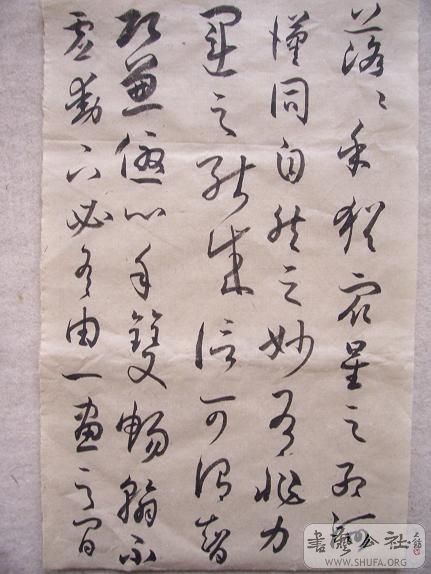 落々乎猶衆星之列河
漢同自然之妙有非力
運之能成信可謂智
巧兼優心手雙暢翰不
虛動下必有由一畫之間
書藝公社
WWW.SHUFA.ORG